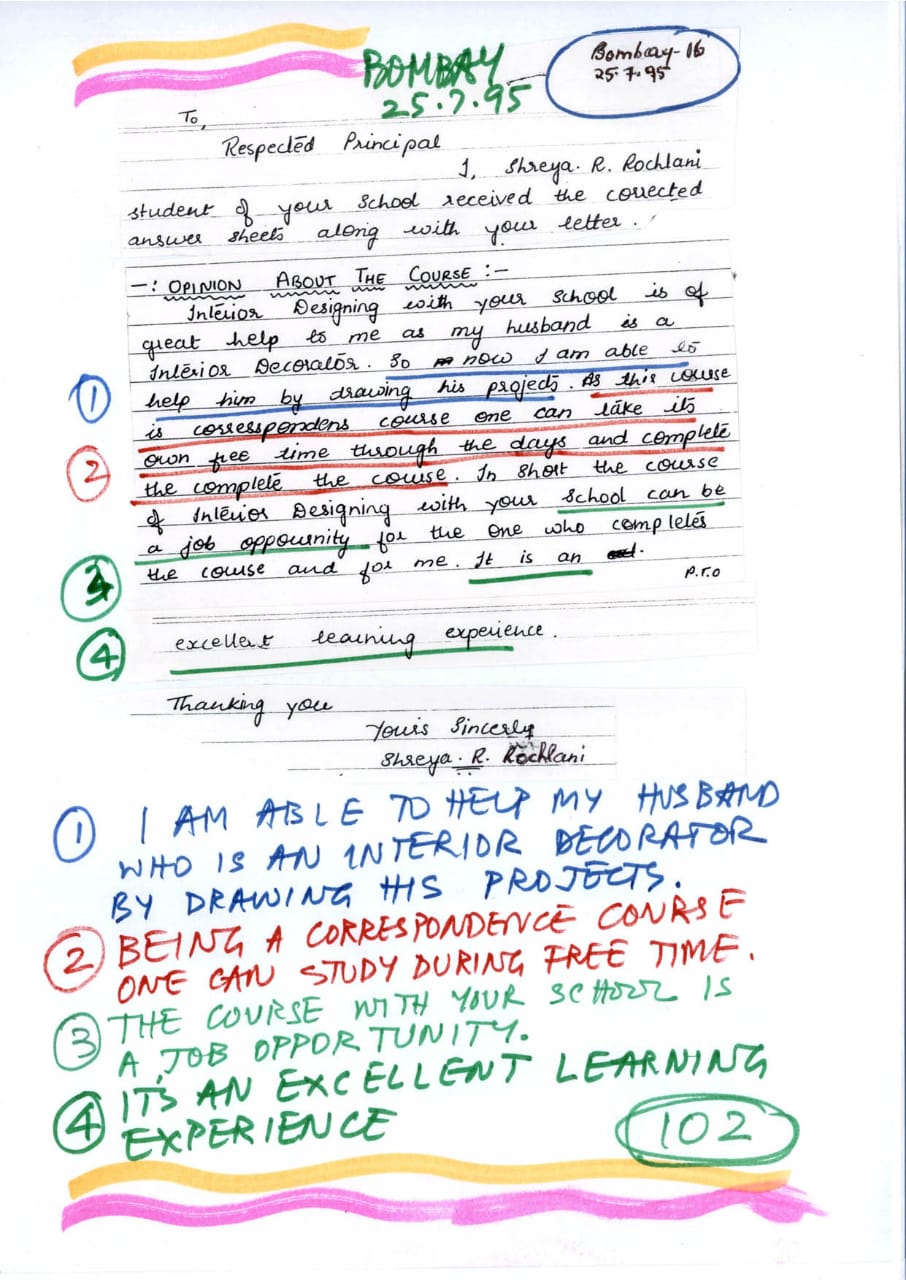 BOMBAY
25.7.95
Bombay-16
25.7.95
To,
Respected Principal
I, Shreya. R. Rochlani
student of your School received the corrected
answer sheets along with your letter.
-: OPINION ABOUT THE COURSE :-
Interior Designing with your school is of
great help to me as my husband is a
Interior Decorator. So now I am able to
help him by drawing his projects. As this course
is corresspondens course one can take its
own free time through the days and complete
the complete the course. In short the course
of Interior Designing with your school can be
a job oppournity for the one who completes
the course and for me. It is an
P.T.O
excellent learning experience.
Thanking you
Yours Sincerly
Shreya. R. Rochlani
1
2
3
4
1 I AM ABLE TO HELP MY HUSBAND
WHO IS AN INTERIOR DECORATOR
BY DRAWING HIS PROJECTS.
2 BEING A CORRESPONDENCE COURSE
ONE CAN STUDY DURING FREE TIME.
3 THE COURSE WITH YOUR SCHOOL IS
A JOB OPPORTUNITY.
4 ITS AN EXCELLENT LEARNING
EXPERIENCE
102